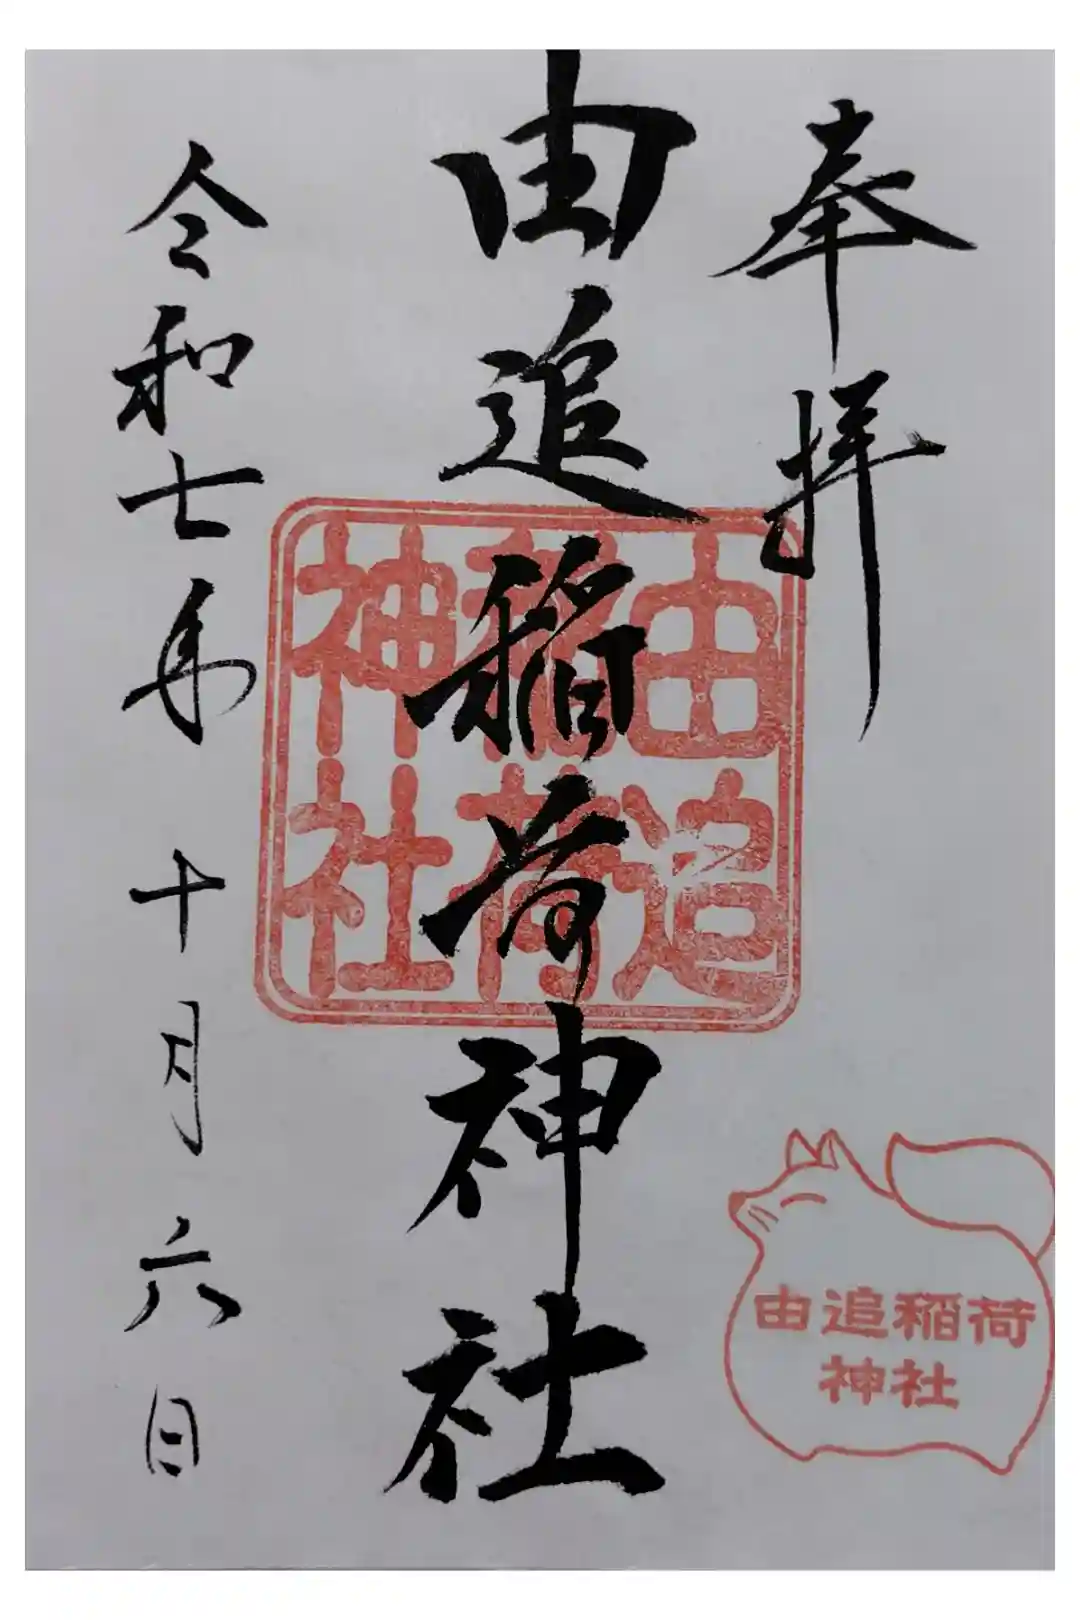 奉拝
由追稲荷神社
由追
稲荷
神社
令和七年十月六日
由追稲荷
神社